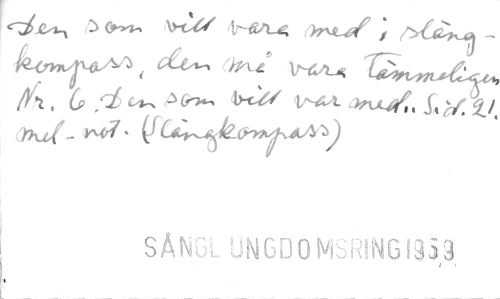 Den som vill vara med i släng-
kompass, den må vara tämmeligen
Nr. 6. Den som vill var med.. Sid. 21.
mel-not. (Slängkompass)
SÅNGL UNGDOMSRING 1959